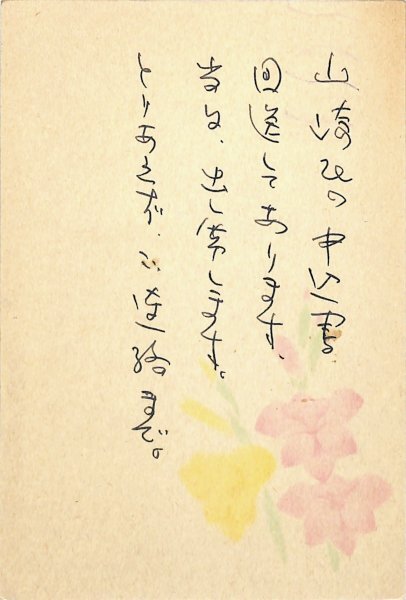 山崎の申込書
回送してあります、
当日、出席します。
とりあえず、ご連絡まで。